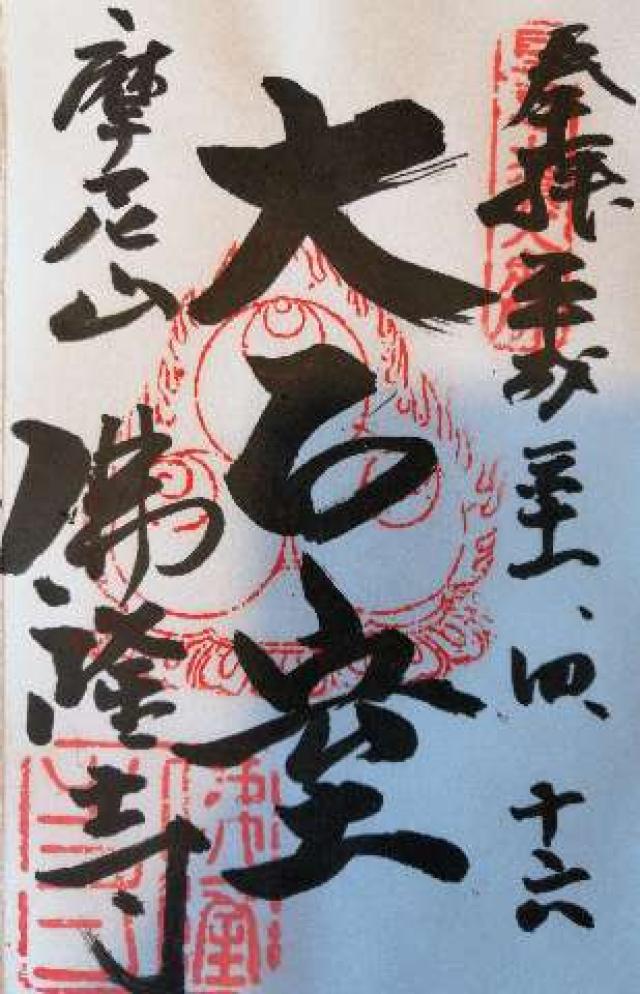 奉拝 平成三十一、四、十六
大石室
摩尼山
佛隆寺